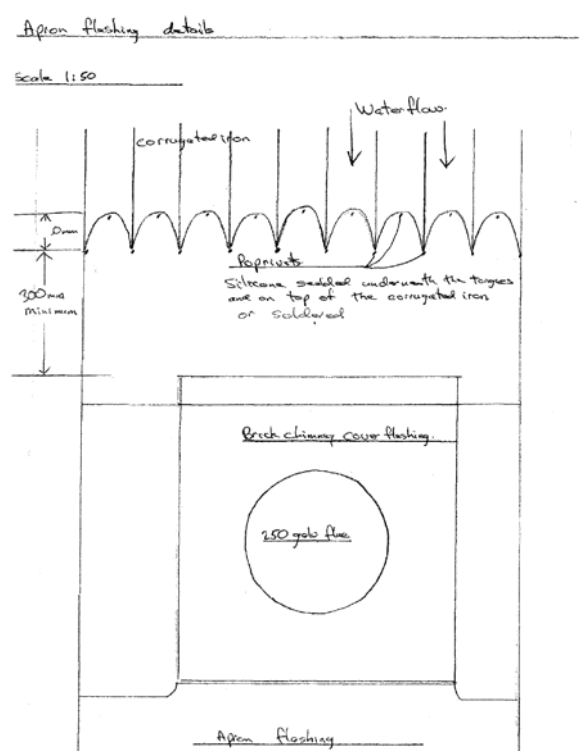 Apron flashing details
Scale 1:50
Waterflow.
corrugated iron
Poprivets
Silicone sealed underneath the tongues
and on top of the corrugated iron
or Soldered
300mm
minimum
Brick chimney cover flashing.
250 galv flue
Apron flashing